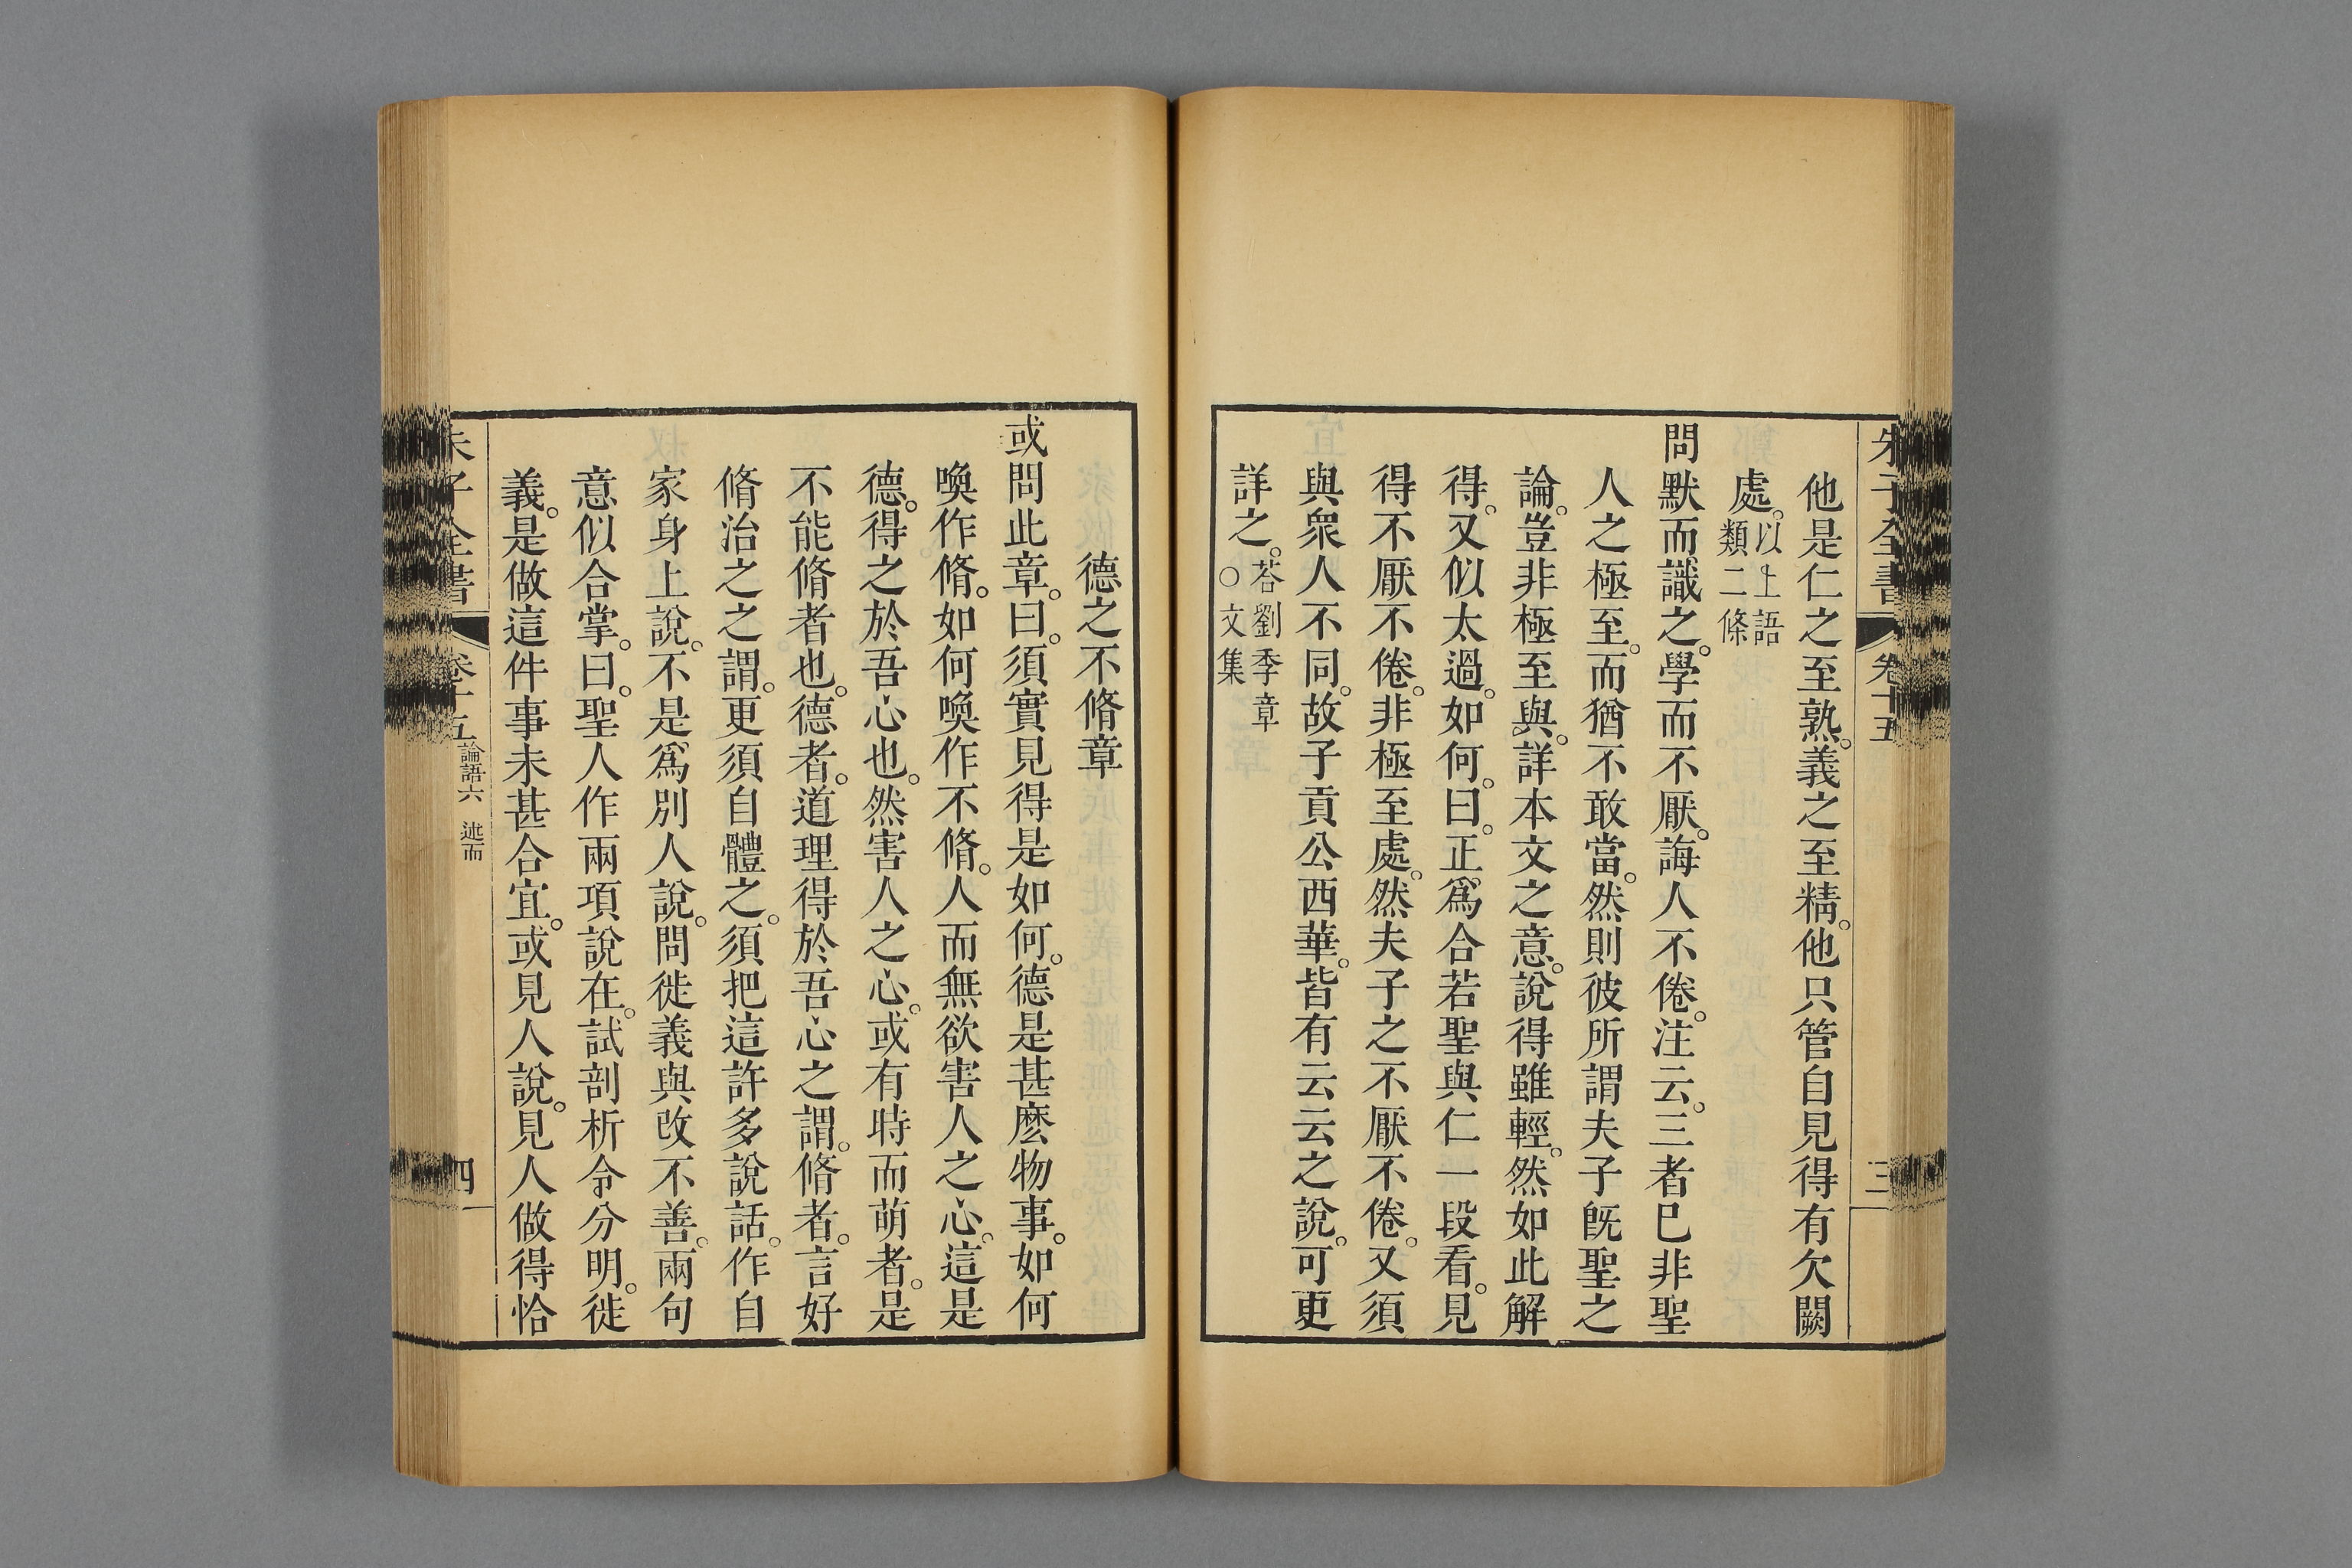 朱子全書 卷十五 三
他是仁之至熟。義之至精。他只管自見得有欠闕
處。以上語類二條
問默而識之。學而不厭。誨人不倦。注云。三者已非聖
人之極至。而猶不敢當。然則彼所謂夫子旣聖之
論。豈非極至與。詳本文之意。說得雖輕。然如此解
得。又似太過。如何。曰。正爲合若聖與仁一段看。見
得不厭不倦。非極至處。然夫子之不厭不倦。又須
與衆人不同。故子貢公西華。皆有云云之說。可更
詳之。荅劉季章○文集
德之不脩章
或問此章。曰。須實見得是如何。德是甚麽物事。如何
喚作脩。如何喚作不脩。人而無欲害人之心。這是
德。得之於吾心也。然害人之心。或有時而萌者。是
不能脩者也。德者。道理得於吾心之謂。脩者。言好
脩治之之謂。更須自體之。須把這許多說話。作自
家身上說。不是爲別人說。問徙義與改不善。兩句
意似合掌。曰。聖人作兩項說在。試剖析令分明。徙
義。是做這件事未甚合宜。或見人說。見人做得恰
朱子全書 卷十五 論語六 述而 四